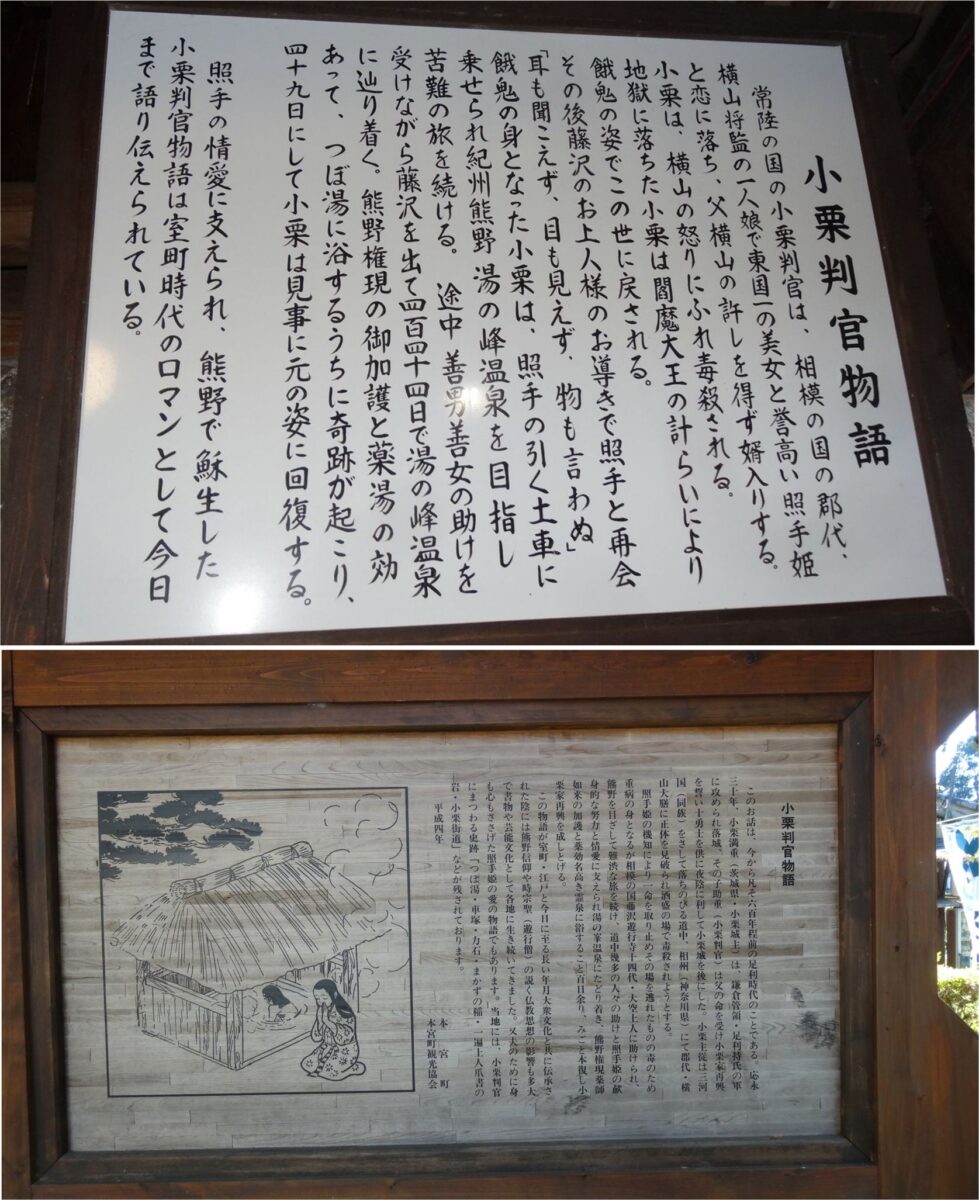 小栗判官物語
常陸の国の小栗判官は、相模の国の郡代、
横山将監の一人娘で東国一の美女と誉高い照手姫
と恋に落ち、父横山の許しを得ず婿入りする。
小栗は、横山の怒りにふれ毒殺される。
地獄に落ちた小栗は閻魔大王の計らいにより
餓鬼の姿でこの世に戻される。
その後藤沢のお上人様のお導きで照手と再会
「耳も聞こえず、目も見えず、物も言わぬ」
餓鬼の身となった小栗は、照手の引く土車に
乗せられ紀州熊野 湯の峰温泉を目指し
苦難の旅を続ける。 途中 善男善女の助けを
受けながら藤沢を出て四百四十四日で湯の峰温泉
に辿り着く。熊野権現の御加護と薬湯の効
あって、つぼ湯に浴するうちに奇跡が起こり、
四十九日にして小栗は見事に元の姿に回復する。
照手の情愛に支えられ、熊野で穌生した
小栗判官物語は室町時代のロマンとして今日
まで語り伝えられている。
小栗判官物語
このお話は、今から凡そ六百年程前の足利時代のことである。応永
三十年、小栗満重（茨城県・小栗城主）は、鎌倉管領・足利持氏の軍
に攻められ落城、その子助重（小栗判官）は父の命を受け小栗家再興
を誓い十勇士を供に夜陰に利して小栗城を後にした。小栗主従は三河
国（同族）をさして落ちのびる道中 相州（神奈川県）にて郡代・横
山大膳に正体を見破られ酒盛の場で毒殺されようとする。
照手姫の機知により一命を取り止めその場を逃れたものの毒のため
重病の身となるが相模の国藤沢遊行寺十四代・大空上人に助けられ、
熊野を目ざして難渋な旅を続け 道中幾多の人々の助けと照手姫の献
身的な努力と情愛に支えられ湯の峯温泉にたどり着き、熊野権現薬師
如来の加護と薬効名高き霊泉に浴すること百日余り、みごと本復し小
栗家再興を成しとげる。
この物語が室町・江戸と今日に至る長い年月大衆文化と共に伝承さ
れた陰には熊野信仰や時宗聖（遊行僧）の説く仏教思想の影響も多大
で書物や芸能文化として各地に生き続いてきました。又夫のために身
も心もささげた照手姫の愛の物語でもあります。当地には、小栗判官
にまつわる史跡「つぼ湯・車塚・力石・まかずの稲・一遍上人爪書の
岩・小栗街道」などが残されております。
平成四年
本宮町
本宮町観光協会